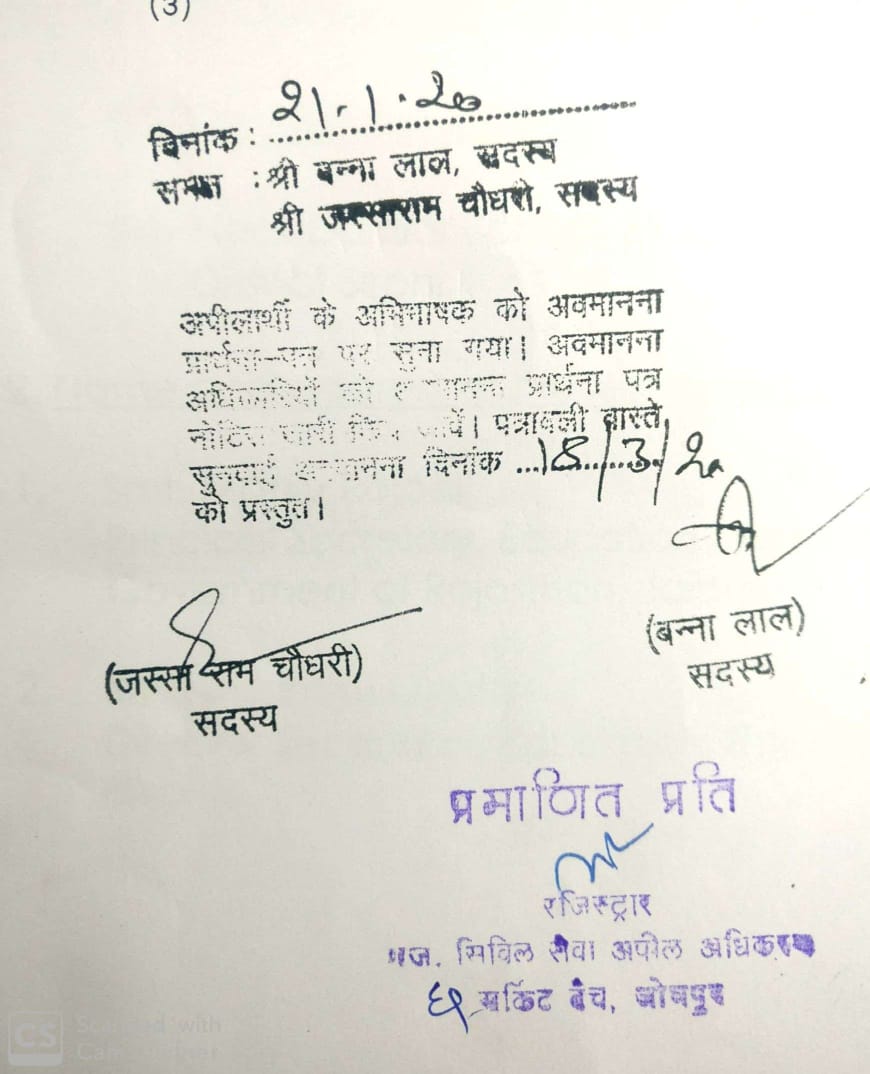 (3)
दिनांक : 21.1.20
समक्ष : श्री बन्ना लाल, सदस्य
श्री जस्साराम चौधरी, सदस्य
अपीलार्थी के अभिभाषक को अवमानना
प्रार्थना-पत्र पर सुना गया। अवमानना
अधिकारियों को अवमानना प्रार्थना पत्र
नोटिस जारी किए जावें। पत्रावली वास्ते
सुनवाई अवमानना दिनांक ...18/3/20
को प्रस्तुत।
(बन्ना लाल)
सदस्य
(जस्सा राम चौधरी)
सदस्य
प्रमाणित प्रति
रजिस्ट्रार
राज. सिविल सेवा अपील अधिकरण
सर्किट बैंच, जोधपुर
CS Scanned with
CamScanner